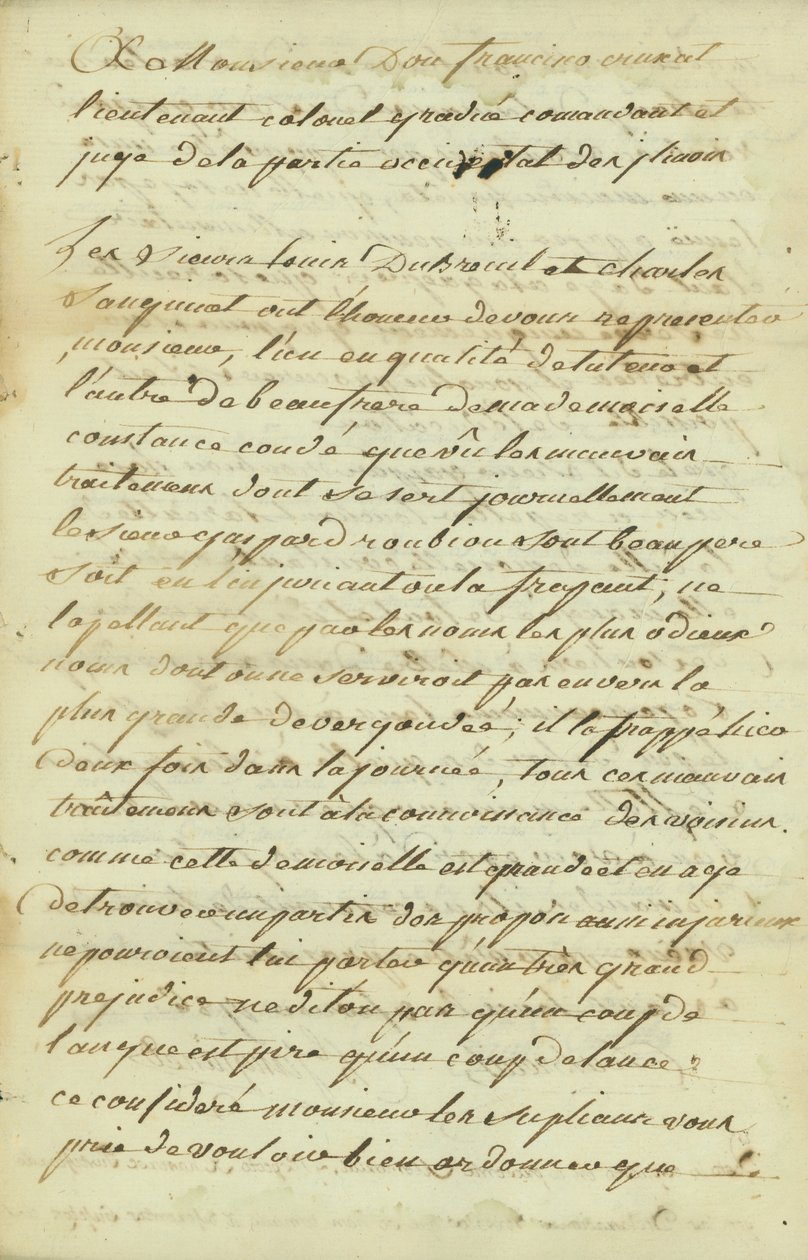 A Monsieur Don francisco cruzat
lieutenant colonel gradué comandant et
juge de la partie occidental des ilinois
Les sieurs louis DuBreuil et charles
Sanguinet ont l'honneur de vous representer
monsieur, l'un en qualité de tuteur et
l'autre de beaufrere de mademoiselle
constance condé que vû les mauvais
traitemens dont se sert journellement
le sieur gaspard roubiou sont beaupere
soit en l'injuriant ou la frapant, ne
lapellant que par les noms les plus odieux
noms dont on ne serviroit pas envers la
plus grande devergondée, il la frappé hier
deux fois dans la journée, tous ces mauvais
traîtemens sont à la connoissance des voisins.
comme cette demoiselle est grande et en age
detrouver un partis des propos aussi injurieux
ne pouroient lui porter qu'un très grand
prejudice ne dit on pas qu'un coup de
langue est pire qu'un coup de lance
ce consideré monsieur les supliants vous
prie de vouloir bien ordonner que